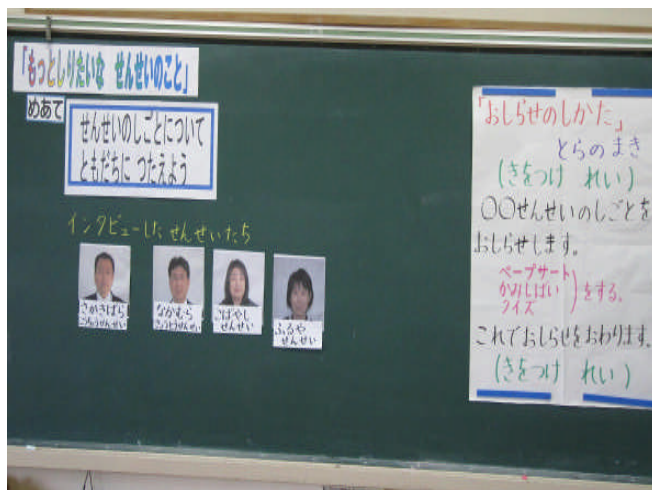 「もっとしりたいな せんせいのこと」
めあて
せんせいのしごとについて
ともだちに つたえよう
インタビューした せんせいたち
さかきばら
こうちょうせんせい
なかむら
きょうとうせんせい
こばやし
せんせい
ふるや
せんせい
「おしらせのしかた」
とらのまき
(きをつけ れい)
〇〇せんせいのしごとを
おしらせします。
ペープサート
かみしばい
クイズ
をする。
これでおしらせをおわります。
(きをつけ れい)